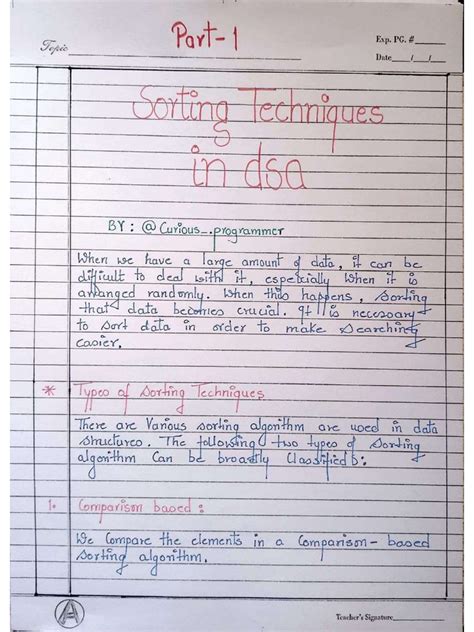 Part-1
Topic
Exp. PG. #
Date / /
Sorting Techniques
in dsa
BY: @Curious_.programmer
When we have a large amount of data, it can be
difficult to deal with it, especially when it is
arranged randomly. When this happens, sorting
that data becomes crucial. It is necessary
to sort data in order to make searching
easier.
* Types of Sorting Techniques
There are Various sorting algorithm are used in data
structures. The following two types of sorting
algorithm can be broadly classified:
1. Comparison based :
We Compare the elements in a Comparison-based
sorting algorithm.
A
Teacher's Signature